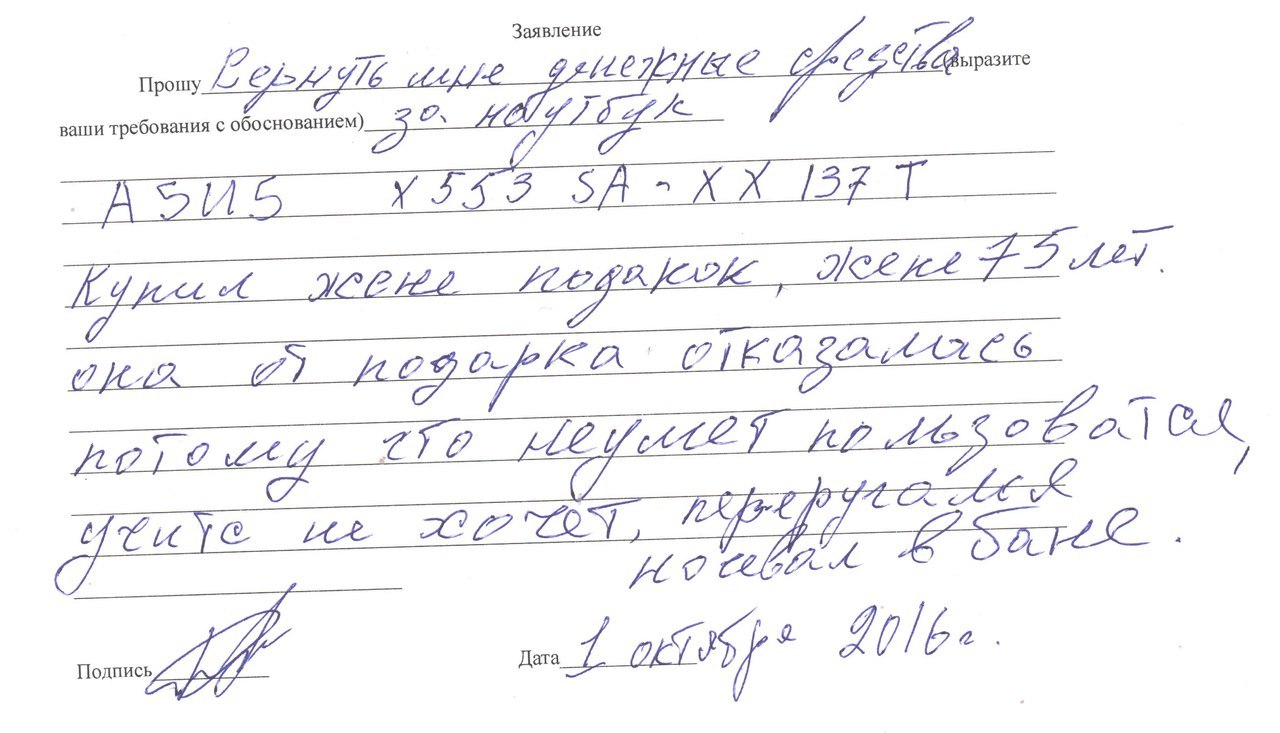 Заявление
Прошу Вернуть мне денежные средства (выразите
ваши требования с обоснованием) за ноутбук
ASUS X553 SA - XX 137 T
Купил жене подакок, жене 75 лет.
она от подарка отказалась
потому что неумет пользоватся,
учитс не хочет, переругался
ночевал в бане.
Подпись
Дата 1 октября 2016 г.